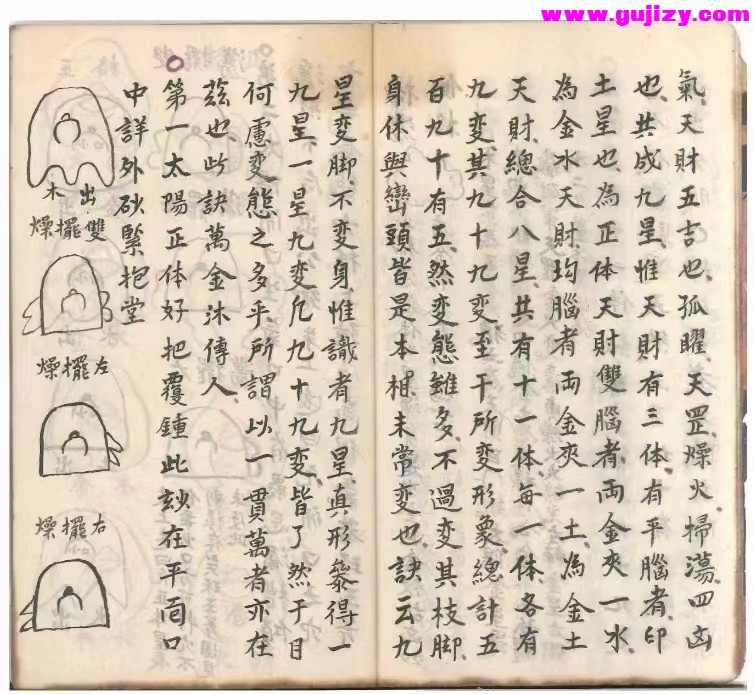 www.gujizy.com
氣、天財五吉也、孤曜、天罡、燥火、掃蕩、四凶
也、共成九星、惟天財有三体、有平腦者、卽
土星也、為正体天財、雙腦者、両金夾一水、
為金水天財、㘬腦者、両金夾一土、為金土
天財、總合八星、共有十一体、每一体、各有
九变、其九十九变、至于所变形象、總計五
百九十有五、然变態雖多、不過变其枝脚、
身体與巒頭皆是本相、未常变也、訣云、九
星变脚、不变身、惟識者九星、真形篆得一
九星、一星九变、凢九十九变、皆了然于目
何慮变態之多乎、所謂以一貫萬者亦在
茲也、此訣萬金沐傳人、
第一太陽正体好把覆鍾此玅在平面口
中詳外砂緊抱堂
出木
雙擺燥
左擺燥
右擺燥